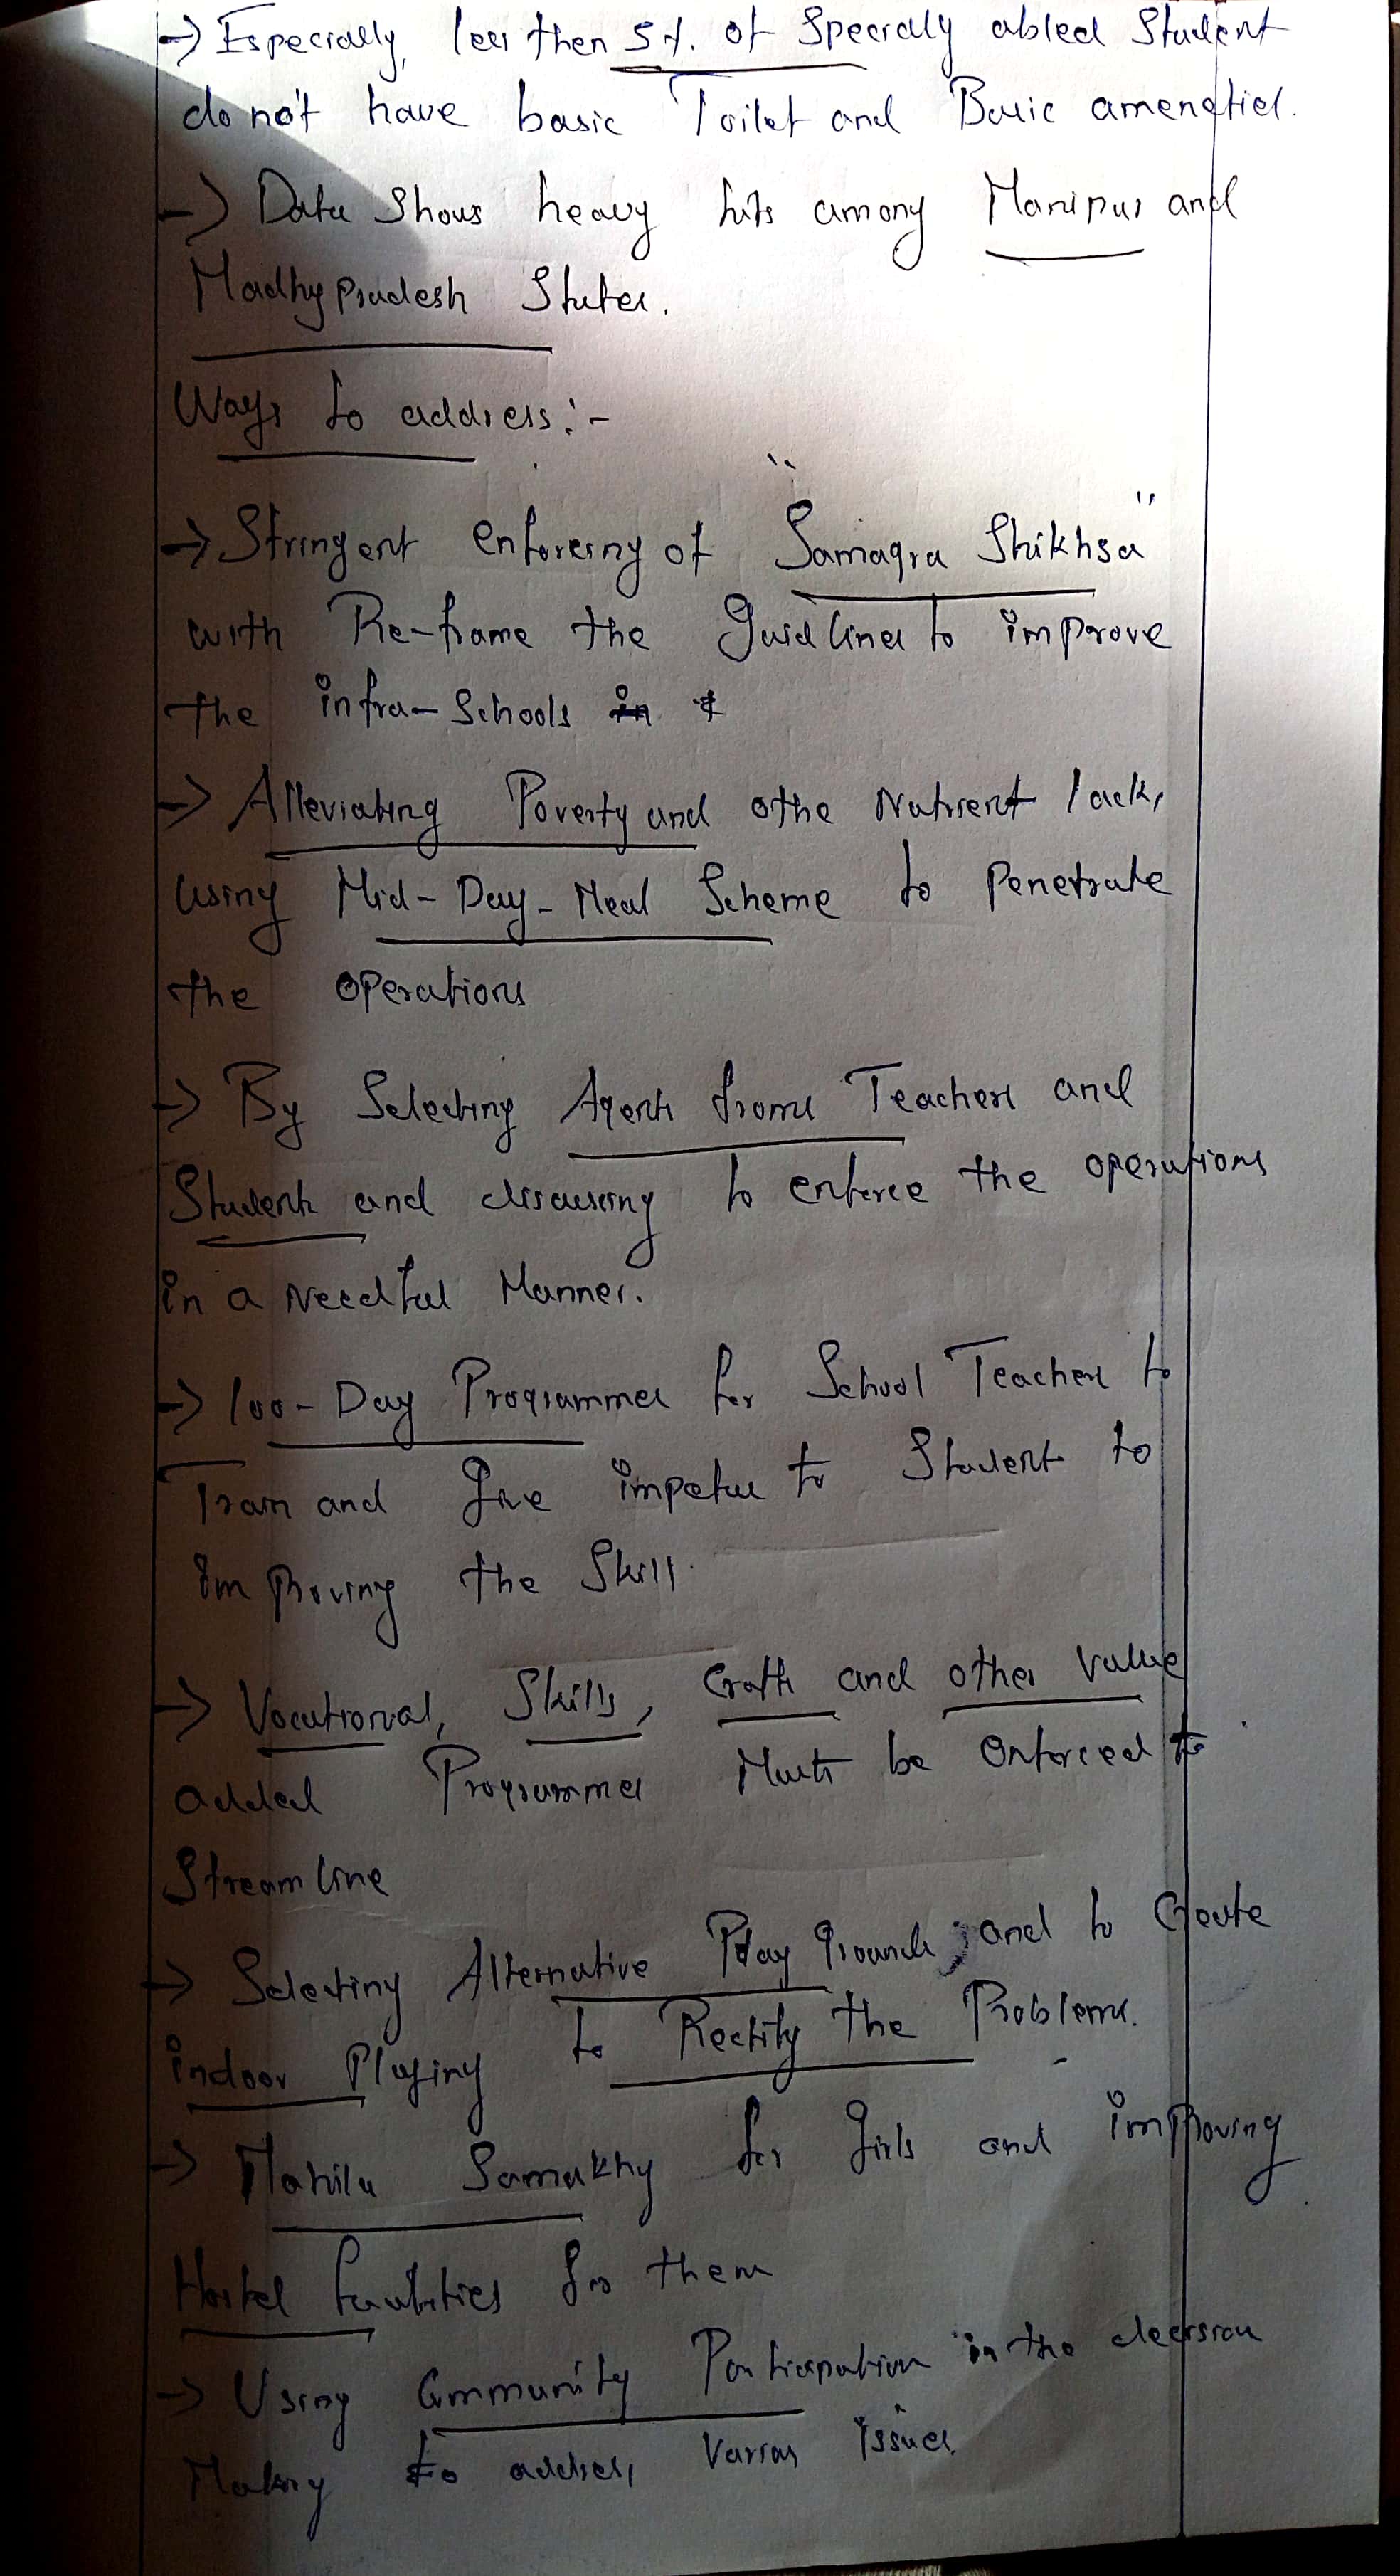 → Especially, less then 5%. of Specially abled Student
do not have basic Toilet and Basic amenetiel.
→ Data Shows heavy hits among Manipur and
Madhy Pradesh States.
Ways to address:-
→ Stringent enforcing of "Samagra Shikhsa"
with Re-frame the Guidlines to improve
the infra- Schools in
→ Alleviating Poverty and othe Nutrient lack,
using Mid-Day-Meal Scheme to Penetrate
the operations
→ By Selecting Agents from Teachers and
Students and discussing to enforce the operations
in a Needful Manner.
→ 100-Day Programmes for School Teachers to
Train and Give impetus to Student to
improving the Skill.
→ Vocational, Skills, Crafts and other value
added Programmes Must be enforced to
Streamline
→ Selecting Alternative Play Grounds; and to Create
indoor Playing to Rectify the Problems.
→ Mahila Samakhy for Girls and improving
Hostel facilities for them
→ Using Community Participation in the decision
Making to address various issues.